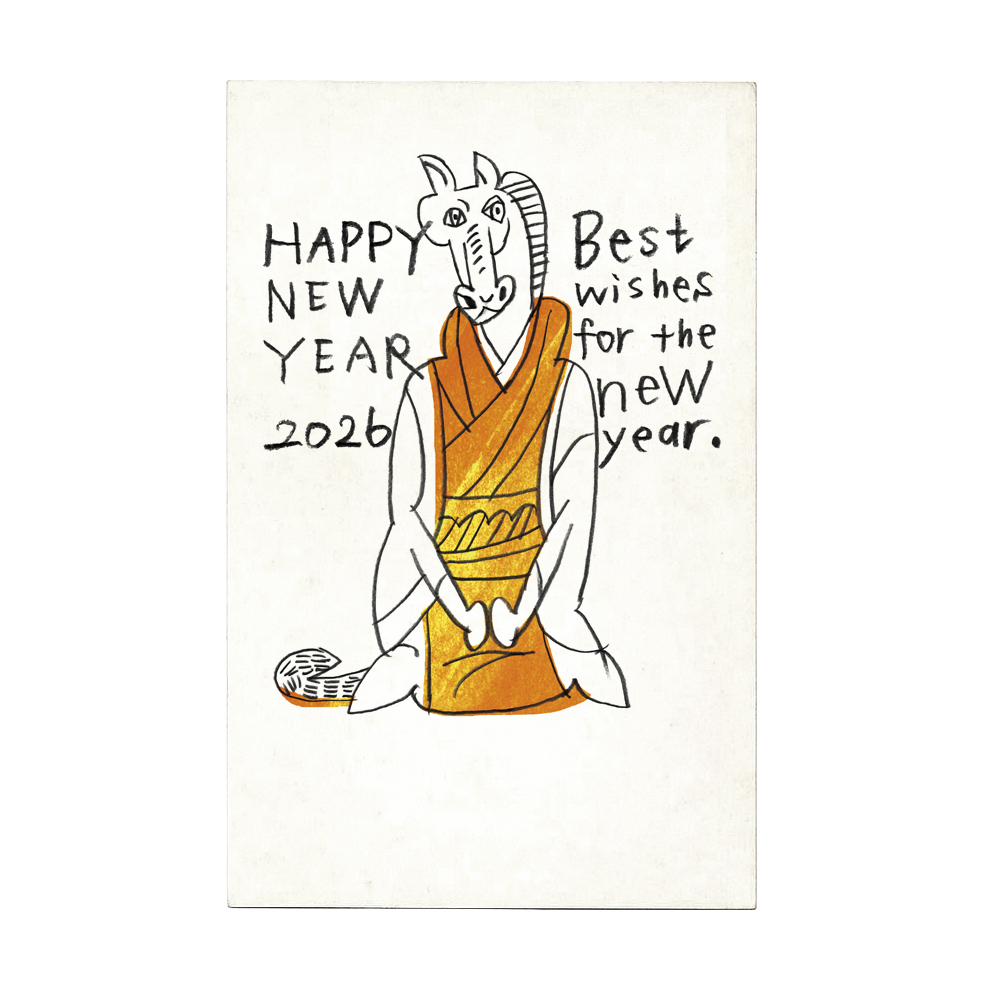 HAPPY
NEW
YEAR
2026
Best
wishes
for the
new
year.